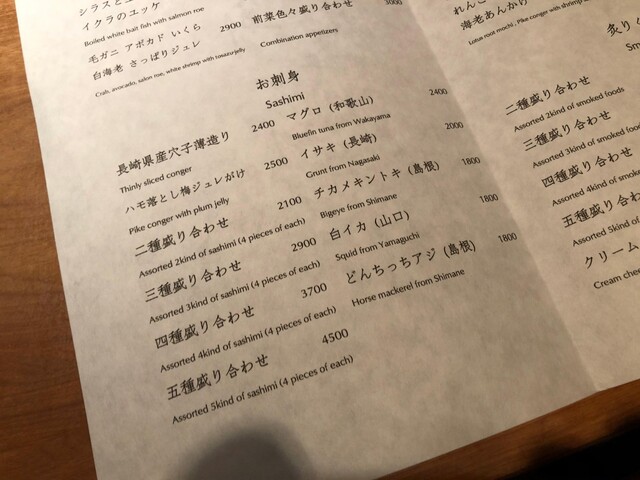 シラスと
イクラのユッケ
Boiled white bait fish with salmon roe
毛ガニ アボカド いくら
白海老 さっぱりジュレ 2900
Crab, avocado, salon roe, white shrimp with tosazu-jelly
前菜色々盛り合わせ 3000
Combination appetizers
お刺身
Sashimi
長崎県産穴子薄造り 2400
Thinly sliced conger
ハモ落とし梅ジュレがけ 2500
Pike conger with plum jelly
二種盛り合わせ 2100
Assorted 2kind of sashimi (4 pieces of each)
三種盛り合わせ 2900
Assorted 3kind of sashimi (4 pieces of each)
四種盛り合わせ 3700
Assorted 4kind of sashimi (4 pieces of each)
五種盛り合わせ 4500
Assorted 5kind of sashimi (4 pieces of each)
マグロ (和歌山) 2400
Bluefin tuna from Wakayama
イサキ (長崎) 2000
Grunt from Nagasaki
チカメキントキ (島根) 1800
Bigeye from Shimane
白イカ (山口) 1800
Squid from Yamaguchi
どんちっちアジ (島根) 1800
Horse mackerel from Shimane
れんこ
海老あんかけ
Lotus root mochi , Pike conger with shrimp
炙り
Sm
二種盛り合わせ
Assorted 2kind of smoked foods
三種盛り合わせ
Assorted 3kind of smoked foods
四種盛り合わせ
Assorted 4kind of smoked
五種盛り合わせ
Assorted 5kind of
クリーム
Cream che